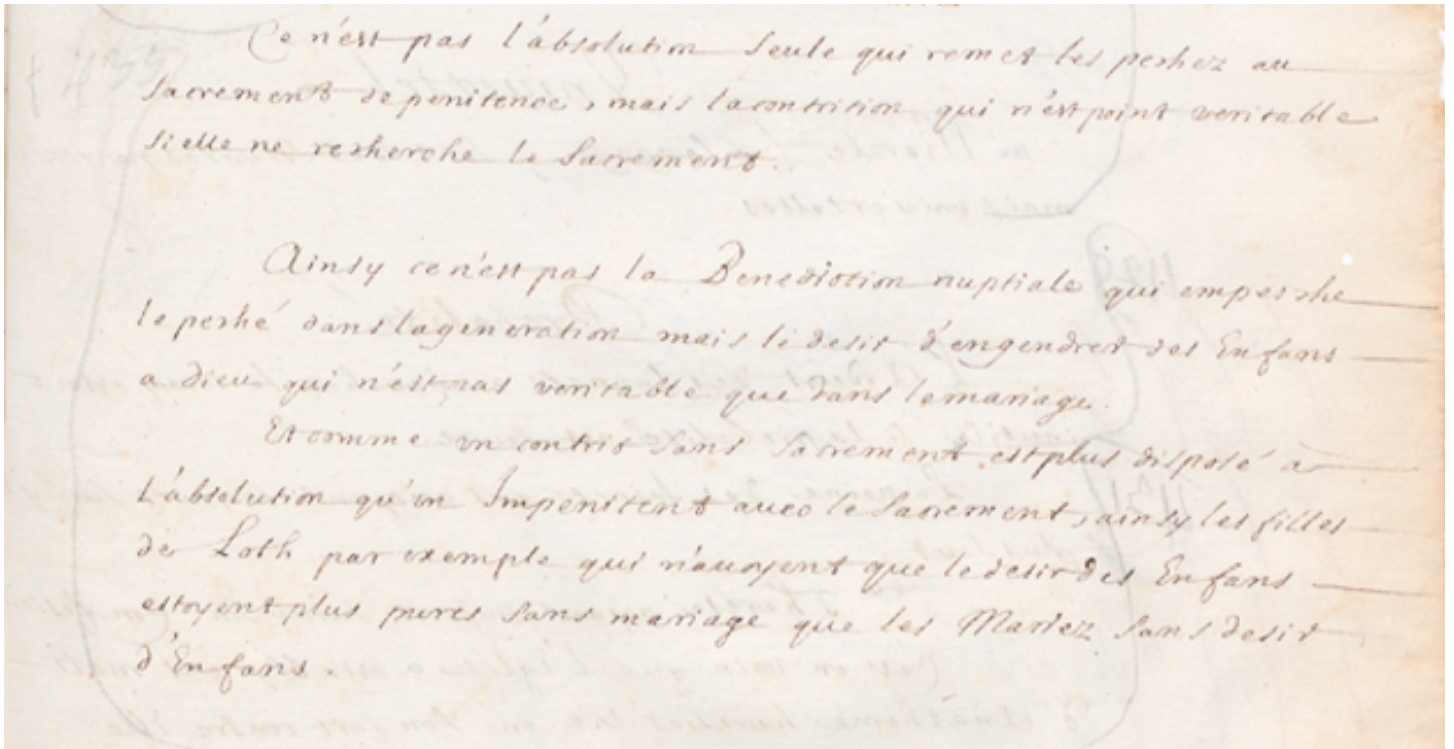 Ce n'est pas l'absolution seule qui remet les pechez au
sacrement de penitence, mais la contrition qui n'est point veritable
si elle ne recherche le sacrement.
Ainsy ce n'est pas la Benediction nuptiale qui empesche
le peché dans la generation mais le desir d'engendrer des Enfans
a dieu qui n'est pas veritable que dans le mariage.
Et comme un contrit sans sacrement est plus disposé a
L'absolution qu'un Impenitent avec le sacrement, ainsy les filles
de Loth par exemple qui n'avoyent que le desir des Enfans
estoyent plus pures sans mariage que les Mariez sans desir
d'Enfans